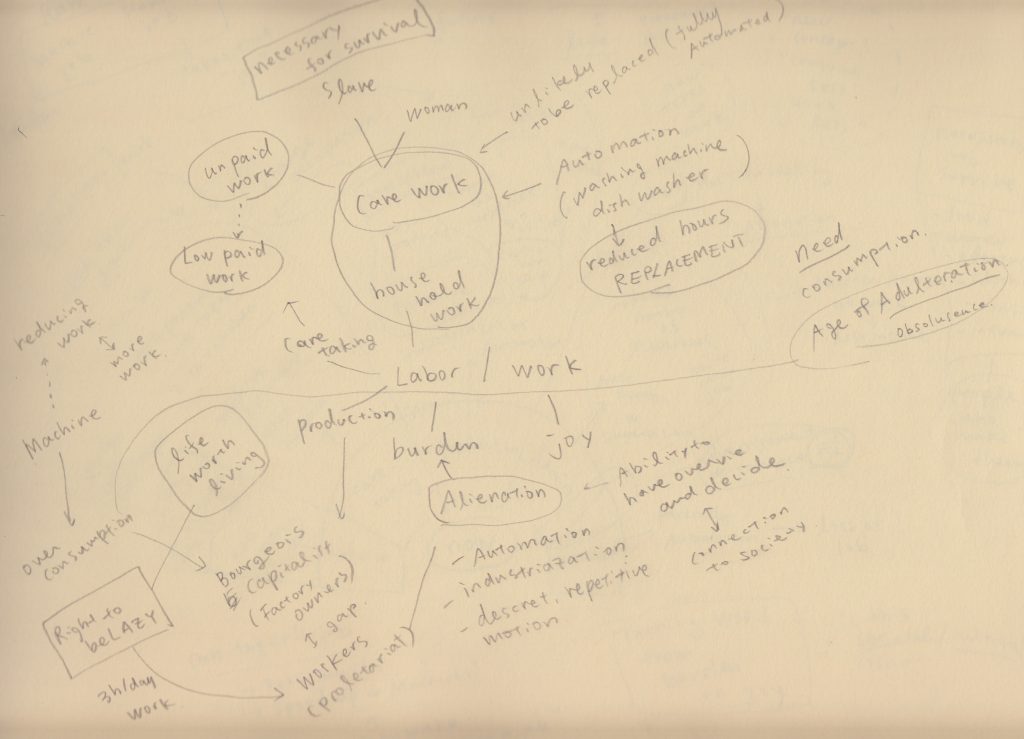 necessary
for survival
Slave
woman
unlikely
to be replaced (fully
Automated)
unpaid
work
Care work
Automation
(washing machine)
dish washer
Low paid
work
house
hold
work
reduced hours
REPLACEMENT
need
consumption.
Age of Adulteration
obsolusence.
reducing
work
more
work.
Care
taking
Labor / work
Machine
life
worth
living
production
burden
joy
Alienation
Ability to
have overvie
and decide.
connection
to society
over
consumption
Bourgeois
Capitalist
(Factory
owners)
gap.
workers
(proletariat)
- Automation
- industriazation
- descret, repetitive
motion
Right to
be LAZY
3h/day
work